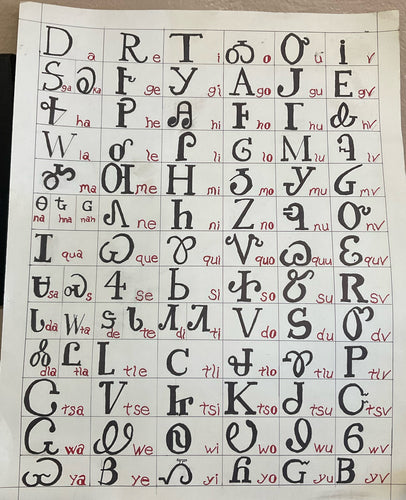 Ꭰ a Ꭱ e Ꭲ i Ꭳ o Ꭴ u Ꭵ v
Ꭶ ga Ꭷ ka Ꭸ ge Ꭹ gi Ꭺ go Ꭻ gu Ꭼ gv
Ꭽ ha Ꭾ he Ꭿ hi Ꮀ ho Ꮁ hu Ꮂ hv
Ꮃ la Ꮄ le Ꮅ li Ꮆ lo Ꮇ lu Ꮈ lv
Ꮉ ma Ꮊ me Ꮋ mi Ꮌ mo Ꮍ mu Ᏽ mv
Ꮎ na Ꮏ hna Ꮐ nah Ꮑ ne Ꮒ ni Ꮓ no Ꮔ nu Ꮕ nv
Ꮖ qua Ꮗ que Ꮘ qui Ꮙ quo Ꮚ quu Ꮛ quv
Ꮜ sa Ꮝ s Ꮞ se Ꮟ si Ꮠ so Ꮡ su Ꮢ sv
Ꮣ da Ꮤ ta Ꮥ de Ꮦ te Ꮧ di Ꮨ ti Ꮩ do Ꮪ du Ꮫ dv
Ꮬ dla Ꮭ tla Ꮮ tle Ꮯ tli Ꮰ tlo Ꮱ tlu Ꮲ tlv
Ꮳ tsa Ꮴ tse Ꮵ tsi Ꮶ tso Ꮷ tsu Ꮸ tsv
Ꮹ wa Ꮺ we Ꮻ wi Ꮼ wo Ꮽ wu Ꮾ wv
Ꮿ ya Ᏸ ye Ᏹ yi Ᏺ yo Ᏻ yu Ᏼ yv